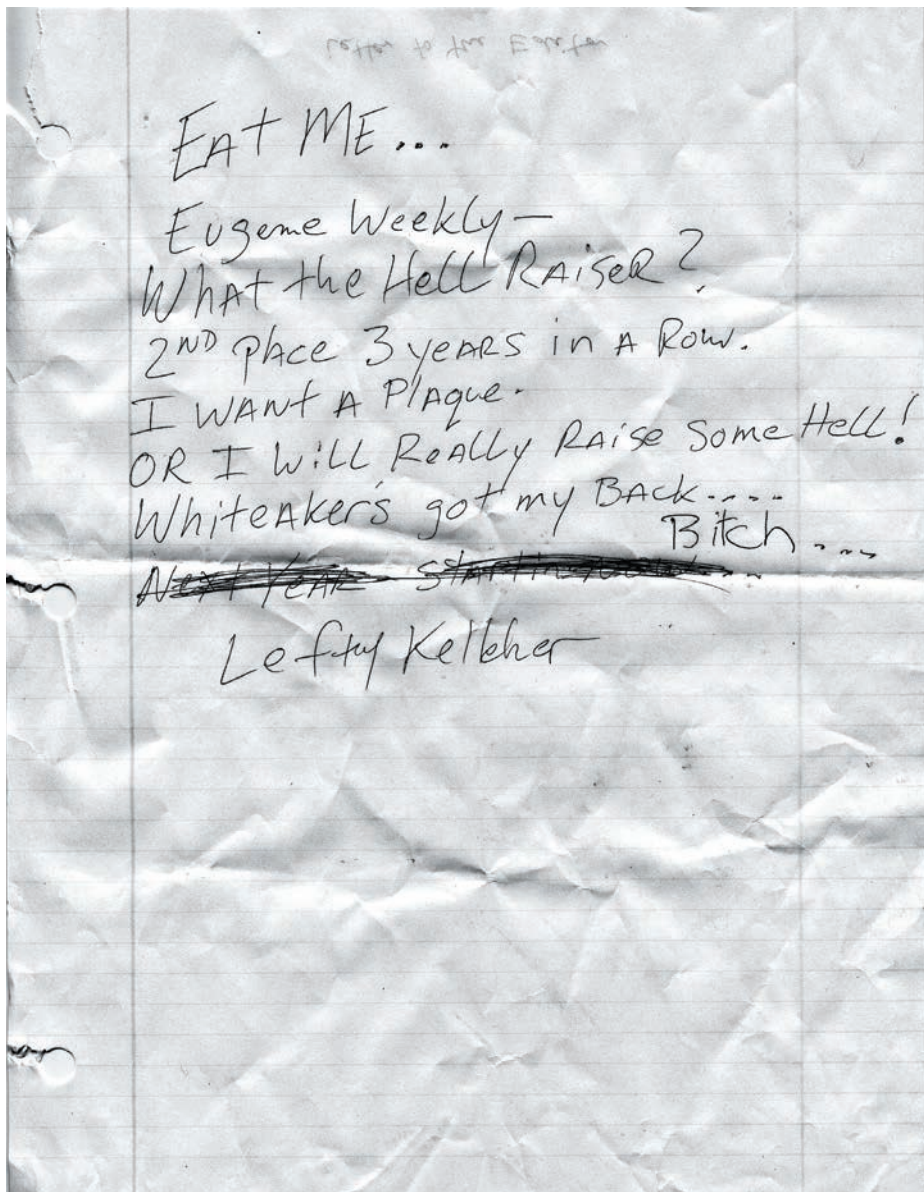 Letter to the Editor
EAT ME...
Eugene Weekly —
WHAT the Hell RAISER?
2ND Place 3 years in A Row.
I WANT A Plaque.
OR I WILL REALLY RAISE Some Hell!
WhiteAker's got my BACK....
Bitch ....
Next YEAR
Lefty Kelleher